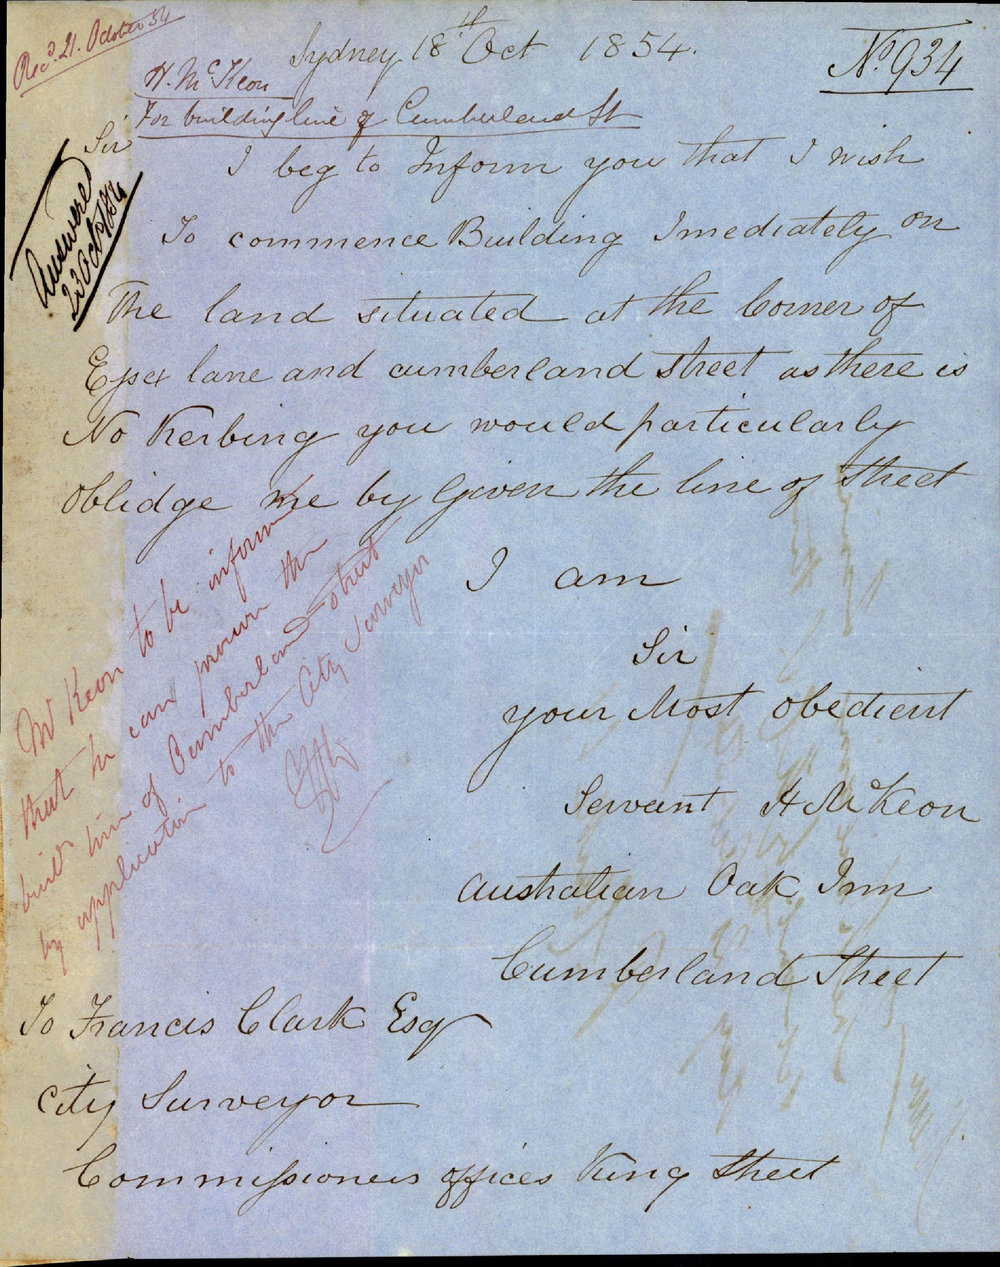 Recd. 21. October 54
Sydney 18th Oct 1854.
No. 934
H. McKeon
For building line of Cumberland St
Sir
Answered
23 Oct 1854
I beg to Inform you that I wish
To commence Building Imediately on
The land situated at the Corner of
Essex lane and cumberland street as there is
No Kerbing you would particularly
oblidge me by Given the line of Street
I am
Sir
your Most obedient
Servant H McKeon
Australian Oak Inn
Cumberland Street
Mr Keon to be informd
that he can procure the
build line of Cumberland street
by application to the City Surveyor
To Francis Clark Esq
City Surveyor
Commissioners offices King Street